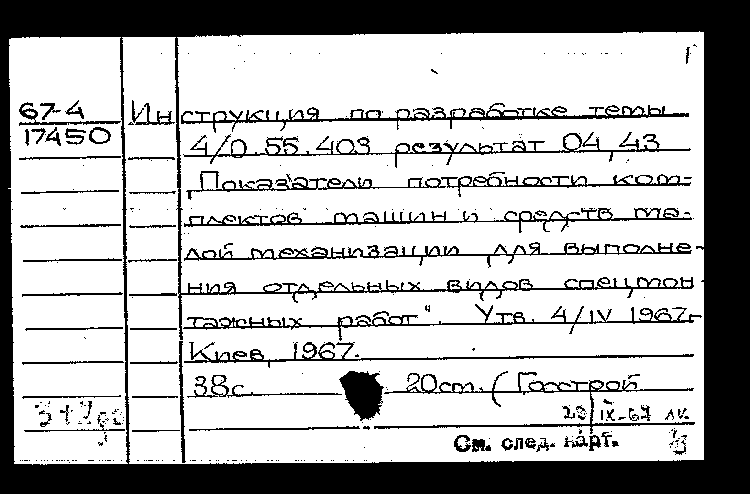 67-4 Инструкция по разработке темы
17450 4/0.55.403 результат 04,43
„Показатели потребности ком-
плектов машин и средств ма-
лой механизации для выполне-
ния отдельных видов спецмон
тажных работ". Утв. 4/IV 1967г
Киев, 1967.
38с. 20см. (Госстрой
29 IX-67 лк
См. след. карт.